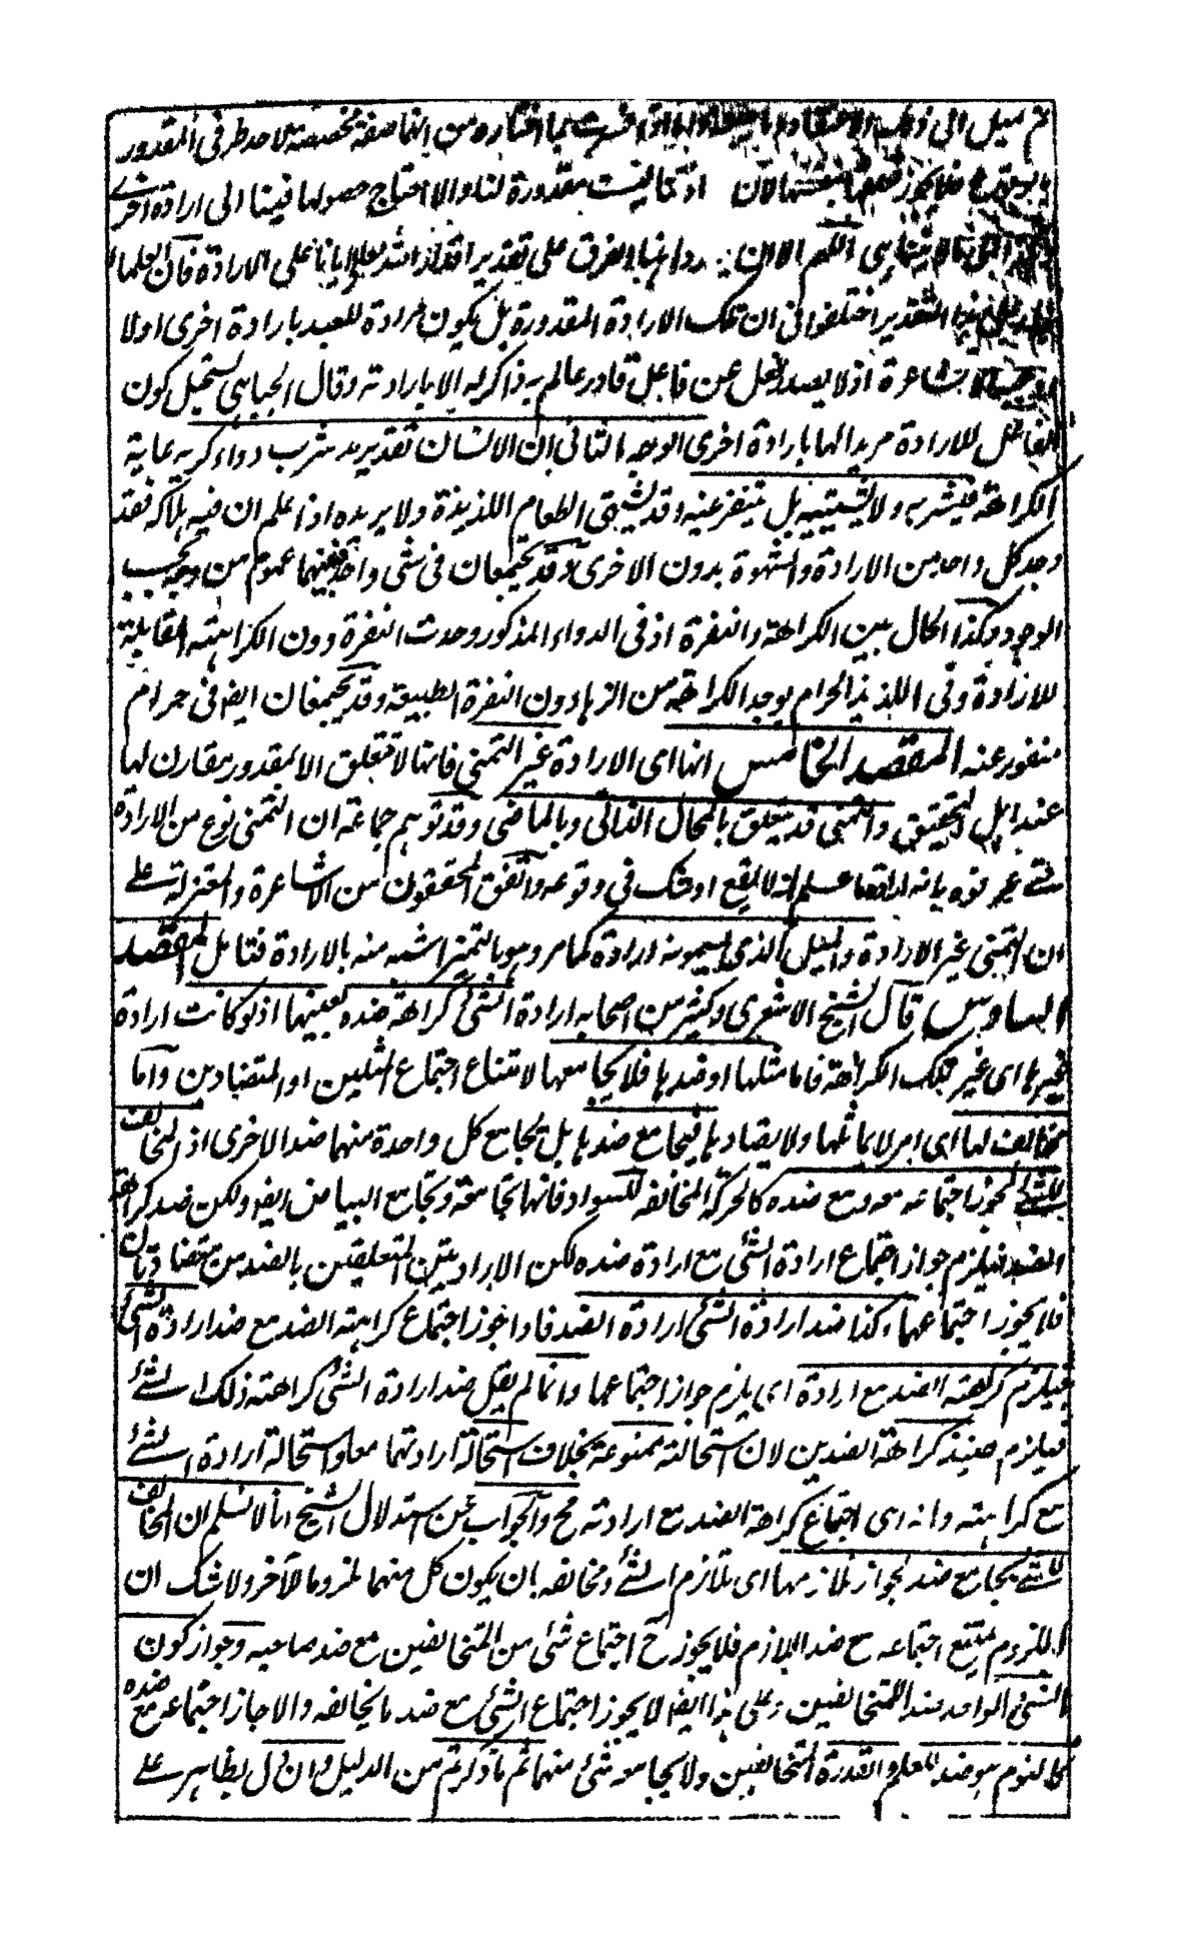 ثم ميل الى ذلك الاعتقاد من انها صفة مخصصة لاحد طرفى المقدور
فلا يجوز لان ارادتنا ليست مقدورة لنا والا احتاج حصولها فينا الى ارادة اخرى
اللهم الا ان الفرق على تقدير اقدار الله تعالى ايانا على الارادة فان العلماء
التقدير اختلفوا فى ان تلك الارادة المقدورة هل يكون مرادة للعبد بارادة اخرى اولا
الاشاعرة اذ لا يصدر الفعل عن فاعل قادر عالم به ذاكر له الا بارادته وقال الجبائى يستحيل كون
الفاعل للارادة مريدا لها بارادة اخرى الوجه الثانى ان الانسان قد يريد شرب دواء كريه غاية
الكراهة فيشربه ولا يشتهيه بل يتنفر عنه وقد يشتهى الطعام اللذيذة ولا يريده اذا علم ان فيه هلاكه فقد
وجد كل واحد من الارادة والشهوة بدون الاخرى وقد يجتمعان فى شئ واحد فبينهما عموم من وجه بحسب
الوجود وكذا الحال بين الكراهة والنفرة اذ فى الدواء المذكور وجدت النفرة دون الكراهة المقابلة
للارادة وفى اللذيذ الحرام يوجد الكراهة من الزهاد دون النفرة الطبيعية وقد يجتمعان ايضا فى حرام
منفور عنه المقصد الخامس انها اى الارادة غير التمنى فانها لا تتعلق الا بمقدور مقارن لها
عند اهل التحقيق والتمنى قد يتعلق بالمحال الذاتى وبالماضى وقد توهم جماعة ان التمنى نوع من الارادة
حتى عرفوه بانه ارادة ما علم انه لا يقع او شك فى وقوعه واتفق المحققون من الاشاعرة والمعتزلة على
ان التمنى غير الارادة والميل الذى يسمونه ارادة كما مر وهو بالتمنى اشبه منه بالارادة فتامل المقصد
السادس قال الشيخ الاشعرى وكثير من اصحابه ارادة الشئ كراهة ضده بعينها اذ لو كانت ارادة
غيرها اى غير تلك الكراهة فاما مثلها او ضدها فلا يجامعها لامتناع اجتماع المثلين او المتضادين واما
مخالف لها اى امر لا يماثلها ولا يضادها فيجامع ضدها بل تجامع كل واحدة منهما ضد الاخرى اذ المخالف
للشئ يجوز اجتماعه معه ومع ضده كالحركة المخالفة للسواد فانها تجامعه وتجامع البياض ايضا ولكن ضد كراهة
الضد فيلزم جواز اجتماع ارادة الشئ مع ارادة ضده لكن الارادتين المتعلقتين بالضدين متضادتان
فلا يجوز اجتماعهما وكذا ضد ارادة الشئ ارادة الضد فاذا جوز اجتماع كراهة الضد مع ضد ارادة الشئ
فيلزم كراهة الضد مع ارادة اى يلزم جواز اجتماعهما وانما لم يقل ضد ارادة الشئ كراهة ذلك الشئ
فيلزم حينئذ كراهة الضدين لان استحالته ممنوعة بخلاف استحالة ارادتهما معا واستحالة ارادة الشئ
مع كراهته وانه اى اجتماع كراهة الضد مع ارادته مح والجواب عن استدلال الشيخ انا لا نسلم ان المخالف
للشئ يجامع ضده لجواز تلازمهما اى تلازم الشئ ومخالفه بان يكون كل منهما ملزوما للآخر ولا شك ان
الملزوم يمتنع اجتماعه مع ضد اللازم فلا يجوز ح اجتماع شئ من المتخالفين مع ضد صاحبه وجواز كون
الشئ الواحد ضدا للمتخالفين وعلى هذا ايضا لا يجوز اجتماع الشئ مع ضد ما يخالفه والا جاز اجتماعه مع ضده
كالنوم هو ضد للعلم والقدرة المتخالفين ولا يجامعه شئ منهما ثم ما ذكرتم من الدليل وان دل بظاهره على